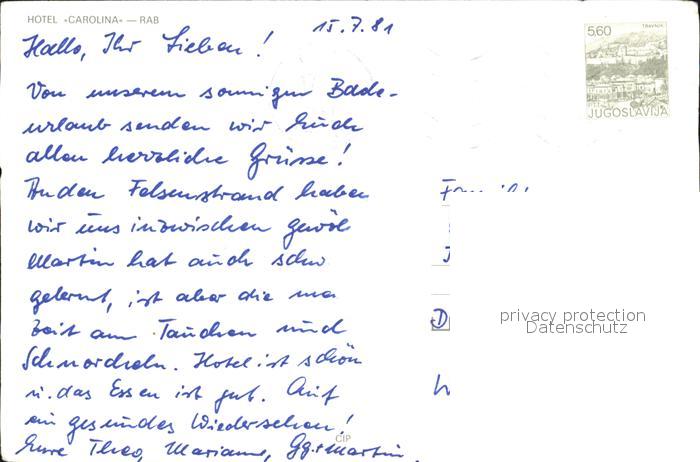 HOTEL «CAROLINA» — RAB
15.7.81
Hallo, Ihr Lieben!
Von unserem sonnigen Bade-
urlaub senden wir Euch
allen herzliche Grüsse!
An den Felsenstrand haben
wir uns inzwischen gewöh
Martin hat auch schw
gelernt, ist aber die me
Zeit am Tauchen und
Schnorcheln. Hotel ist schön
u. das Essen ist gut. Auf
ein gesundes Wiedersehen!
Eure Theo, Marianne, Gg. + Martin
CIP
5,60
TRAVNIK
JUGOSLAVIJA
D
privacy protection
Datenschutz